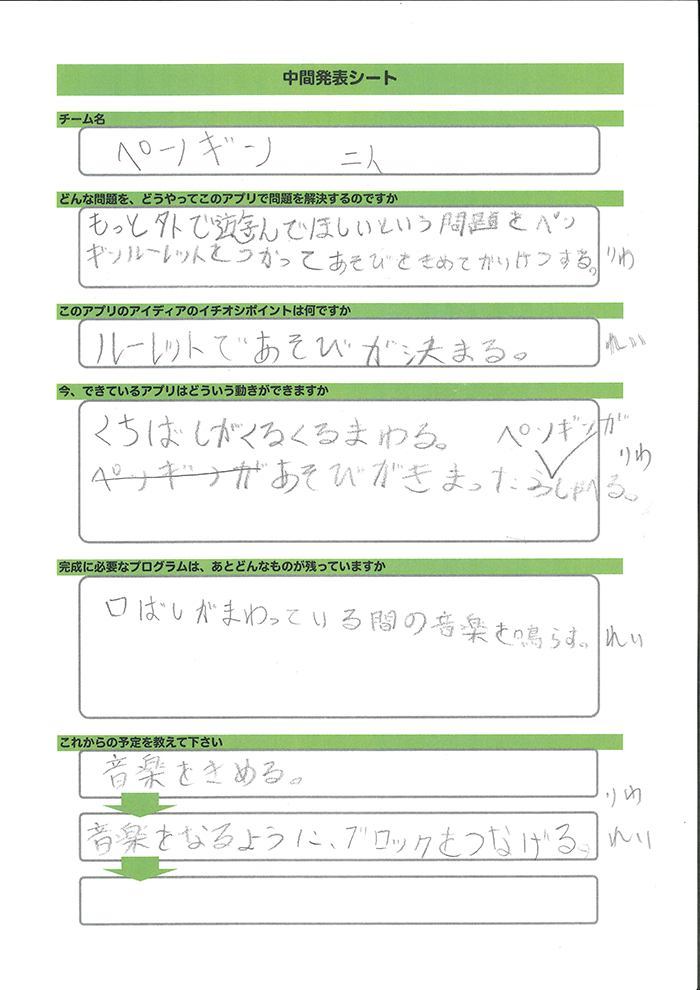 中間発表シート
チーム名
ペンギン 二人
どんな問題を、どうやってこのアプリで問題を解決するのですか
もっと外で遊んでほしいという問題をペン
ギンルーレットをつかってあそびをきめてかいけつする。 りわ
このアプリのアイディアのイチオシポイントは何ですか
ルーレットであそびが決まる。 れい
今、できているアプリはどういう動きができますか
くちばしがくるくるまわる。 ペンギンが
ペンギンがあそびがきまったらしゃべる。 りわ
完成に必要なプログラムは、あとどんなものが残っていますか
口ばしがまわっている間の音楽を鳴らす。 れい
これからの予定を教えて下さい
音楽をきめる。 りわ
音楽をなるように、ブロックをつなげる。 れい